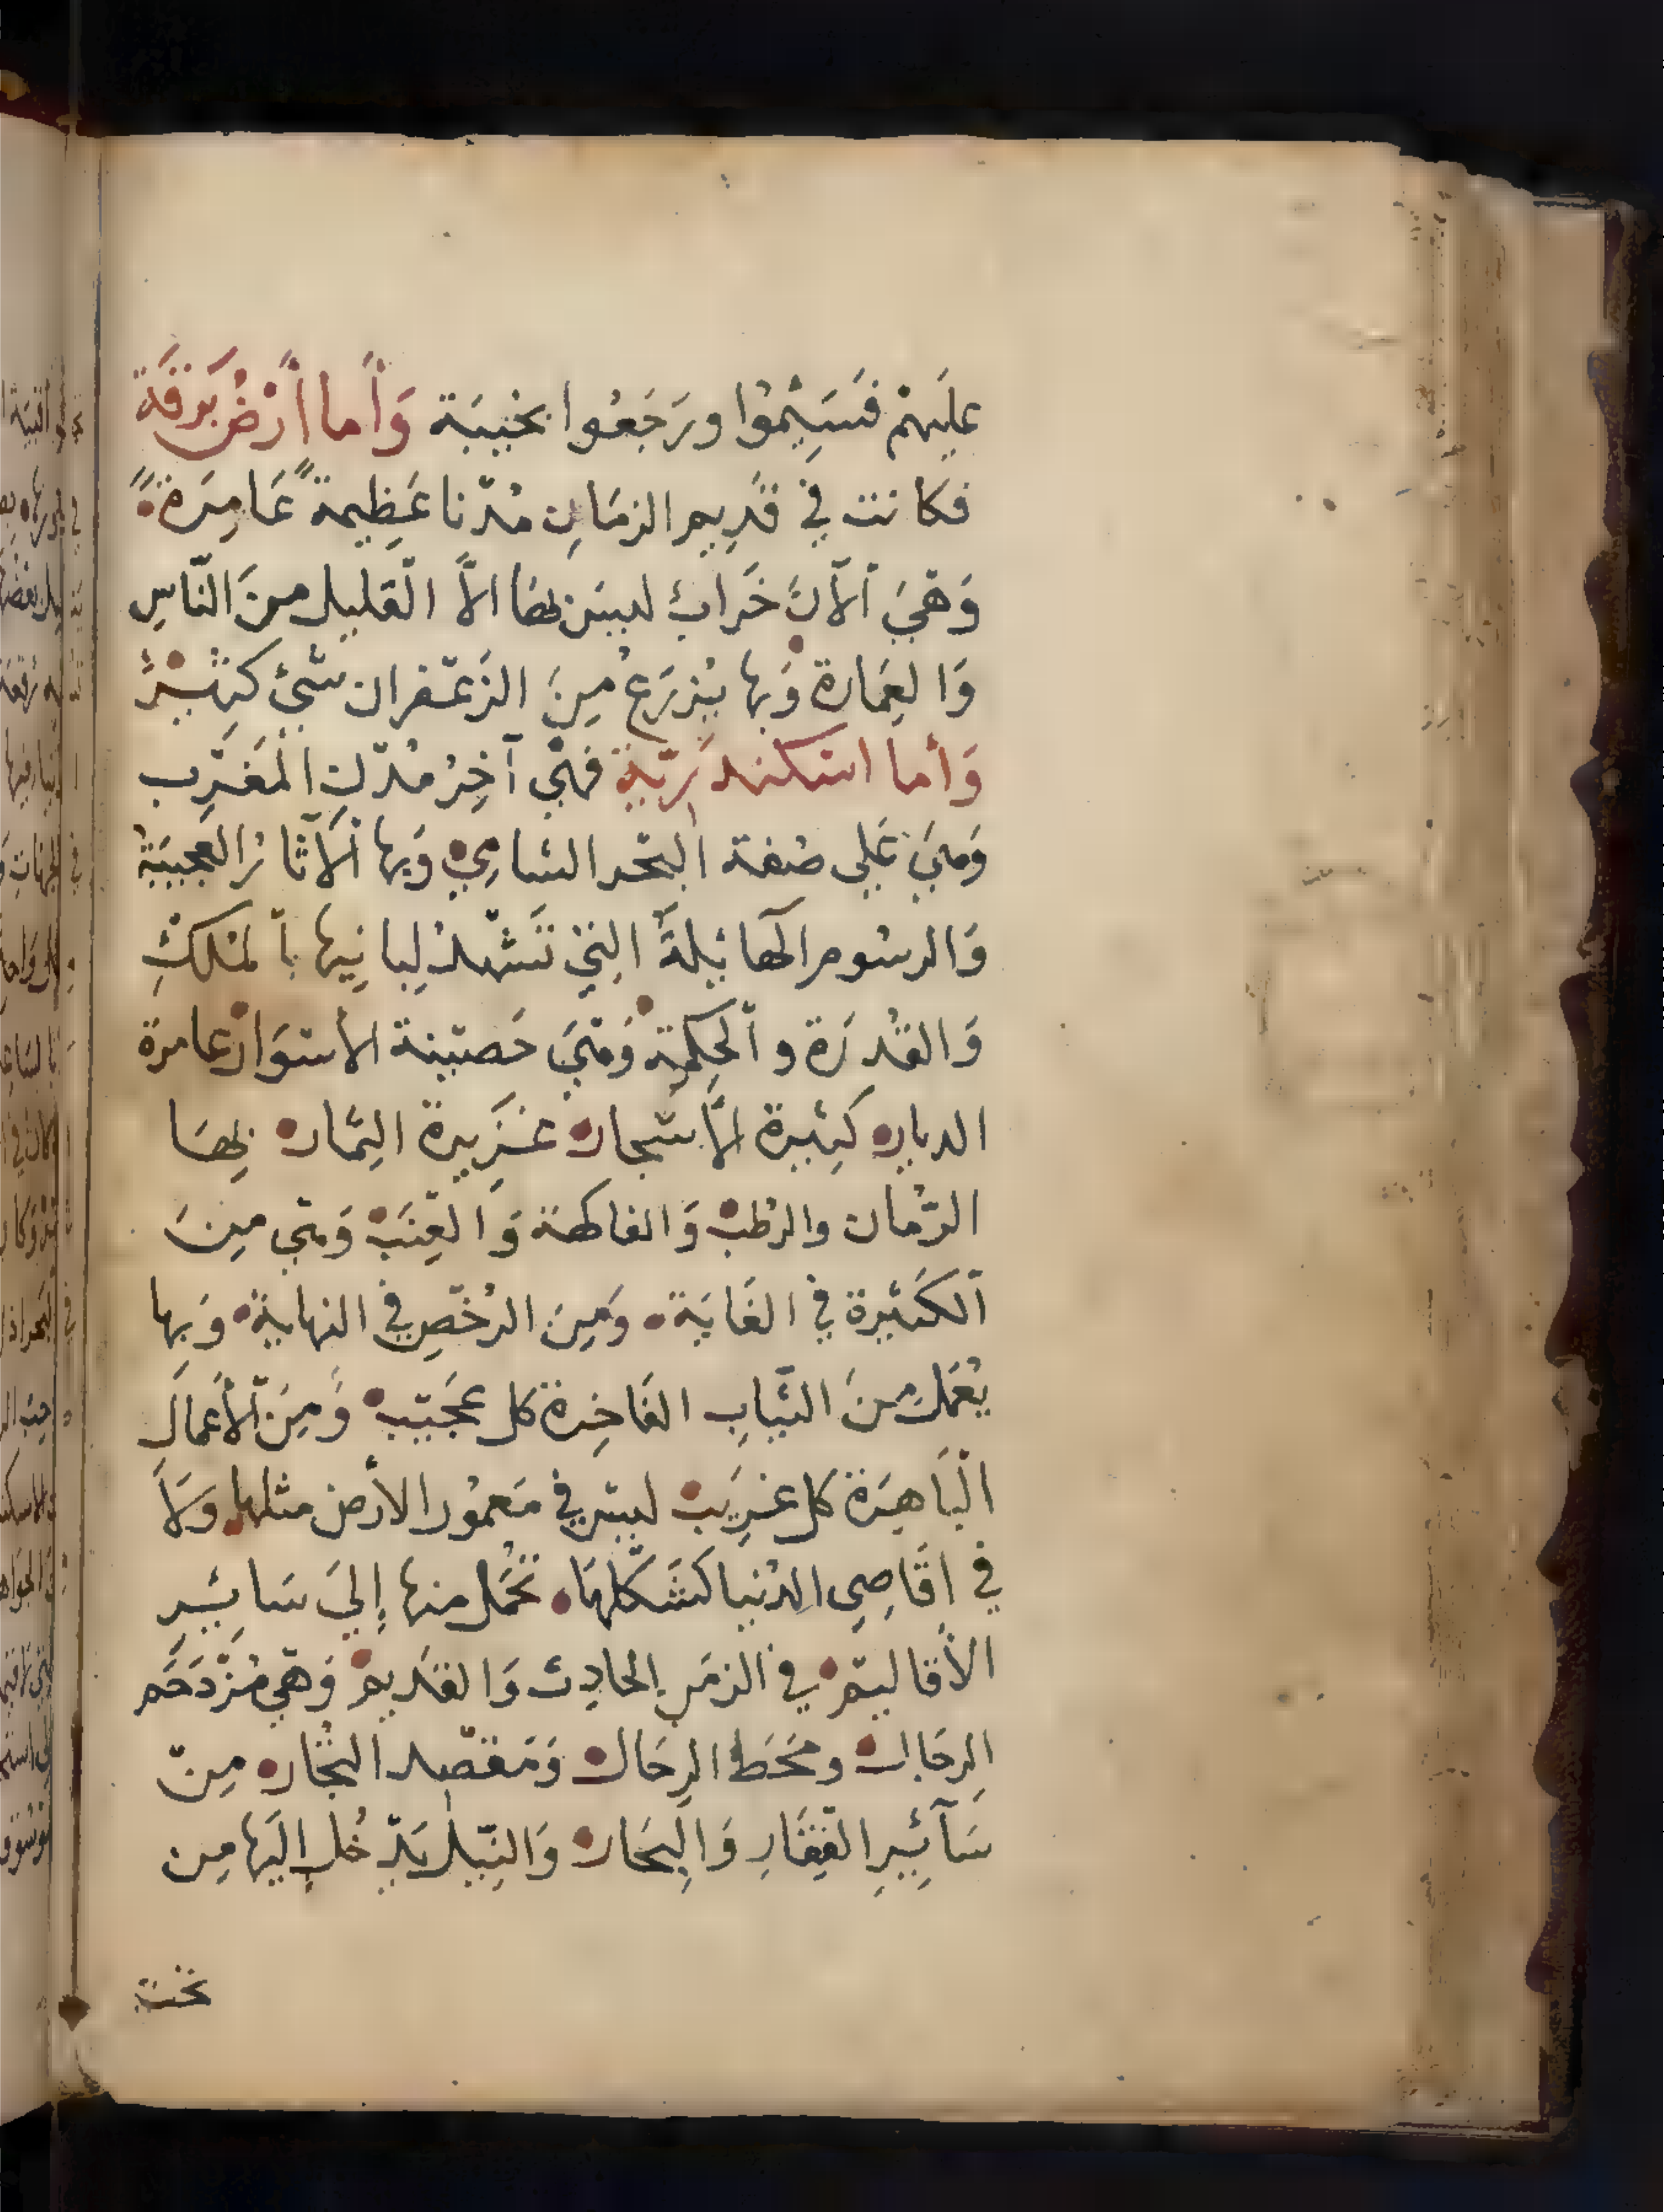 عليهم فسَيِمُوا ورَجَعُوا بخيبَة وَأَما أَرْضُ بَرقَة
فكانت في قَدِيم الزمَانِ مُدّنا عَظِيمةً عَامِرَةً
وَهْيَ ٱلآنَ خَرابٌ ليسَ بهَا الاَّ القليل مِنَ النّاسِ
وَالعِمَارة وَبها يُزرَع مِنَ الزَعْفران شَيْئ كَثِيرٌ
وَأما اسْكندَرِيّة فهْي آخِرُ مُدْنِ المَغْرِب
وَهيَ عَلى ضفة البَحْر الشامِي وَبها ٱلآثارُ العجيبَةُ
وَالرسُوم الهائِلةَ التِي تَشْهدُ لِبانِيها بٱلمُلكِ
وَالقُدرَة وٱلحِكمة وَهيَ حَصينة الأسْوَارْ عامرة
الديار كثِيرة الأشجار غَزِيرة الثِمار بِهَا
الرّمان والرُطبْ وَالفاكهة وَالعِنَبْ وَهْي مِنَ
ٱلكَثيرة في الغَايَة وَمِنَ الرُخْصِ في النهاية وَبها
يُعْمَل مِنَ الثيَابِ الفَاخِرة كل عَجَيبْ وَمِنَ ٱلأَعْمَال
الْبَاهِرَة كل غَرِيبْ ليسَ في مَعمُور الأرض مثلها وَلَا
في اقَاصِي الدُنيا كَشَكْلهَا تُحْمَل منها إِليَ سَائِرِ
الأَقاليمْ في الزمَنِ الحادِث وَالقَدِيمْ وَهْي مُزْدَحَم
الرِجَال ومَحَط الرِحَال وَمَقصْد التُجّار مِنْ
سَآئِرِ القِفَارِ وَالبِحَار وَالنِيْل يَدْخُل إِلَيها مِن